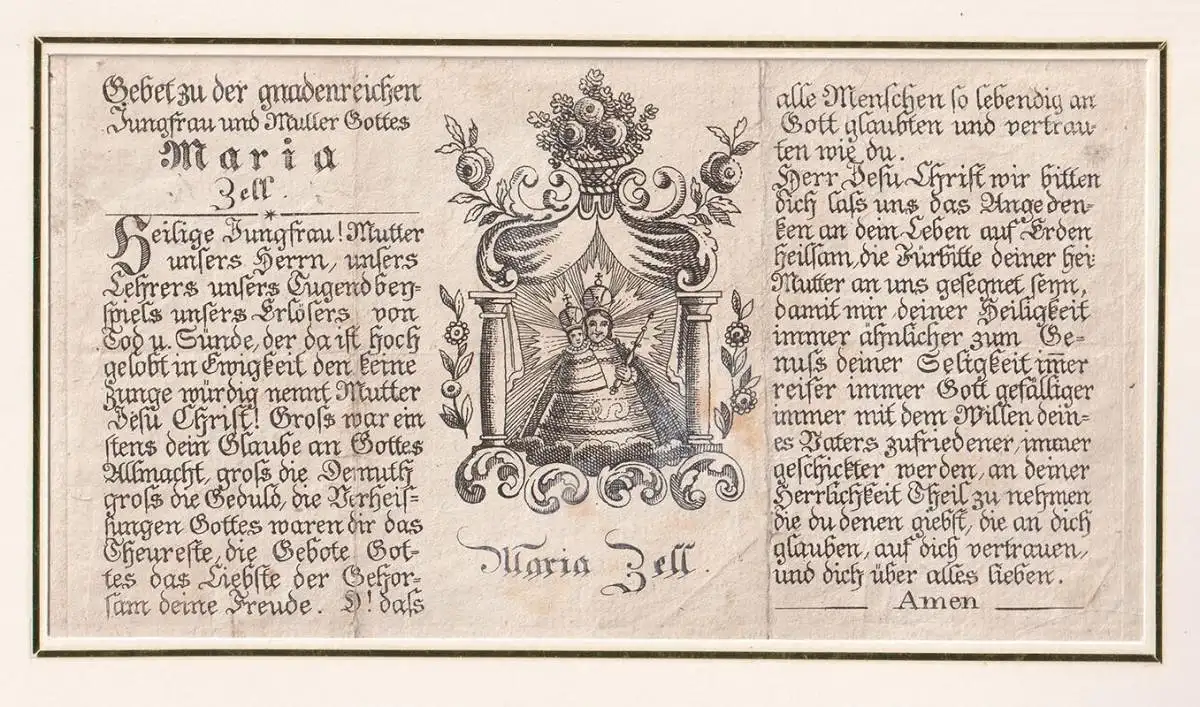 Gebet zu der gnadenreichen
Jungfrau und Mutter Gottes
Maria
Zell.
Heilige Jungfrau! Mutter
unsers Herrn, unsers
Lehrers unsers Tugendbey-
spiels unsers Erlösers von
Tod u. Sünde, der da ist hoch
gelobt in Ewigkeit den keine
Zunge würdig nennt Mutter
Jesu Christ! Gross war ein
stens dein Glaube an Gottes
Allmacht, gross die Demuth
gross die Geduld, die Verheis-
sungen Gottes waren dir das
Theureste, die Gebote Got-
tes das Liebste der Gehor-
sam deine Freude. O! dass
Maria Zell.
alle Menschen so lebendig an
Gott glaubten und vertrau-
ten wie du.
Herr Jesu Christ wir bitten
dich lass uns das Angeden-
ken an dein Leben auf Erden
heilsam, die Fürbitte deiner hei-
Mutter an uns gesegnet seyn,
damit mir deiner Heiligkeit
immer ähnlicher zum Ge-
nuss deiner Seligkeit im̅er
reifer immer Gott gefälliger
immer mit dem Willen dein-
es Vaters zufriedener, immer
geschickter werden, an deiner
Herrlichkeit Theil zu nehmen
die du denen giebst, die an dich
glauben, auf dich vertrauen,
und dich über alles lieben.
Amen